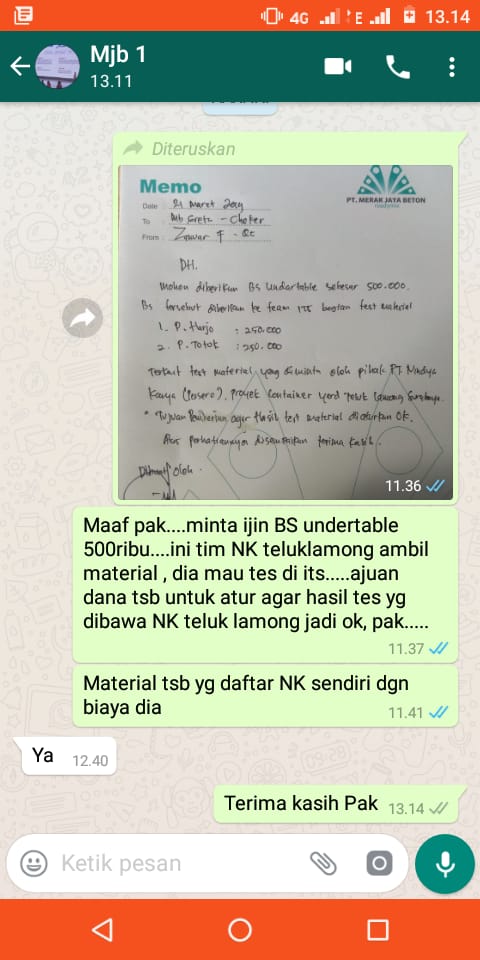 4G
E
13.14
Mjb 1
13.11
Diteruskan
Memo
PT. MERAK JAYA BETON
readymix
Date : 21 Maret 2019
To : - Choker
From : Zawar F - Qc
DH.
Mohon diberikan BS Undertable sebesar 500.000.
Bs tersebut diberikan ke team ITS bagian test material
1. P. Harjo : 250.000
2. P. Totok : 250.000
Terkait test material yang diminta oleh pihak PT. Nindya
Karya (Persero). Proyek Container yard Teluk Lamong Surabaya.
* Tujuan Pemberian agar Hasil test material diaturkan OK.
Atas Perhatiannya disampaikan terima kasih.
oleh.
11.36
Maaf pak....minta ijin BS undertable
500ribu....ini tim NK teluklamong ambil
material , dia mau tes di its.....ajuan
dana tsb untuk atur agar hasil tes yg
dibawa NK teluk lamong jadi ok, pak.....
11.37
Material tsb yg daftar NK sendiri dgn
biaya dia
11.41
Ya
12.40
Terima kasih Pak
13.14
Ketik pesan